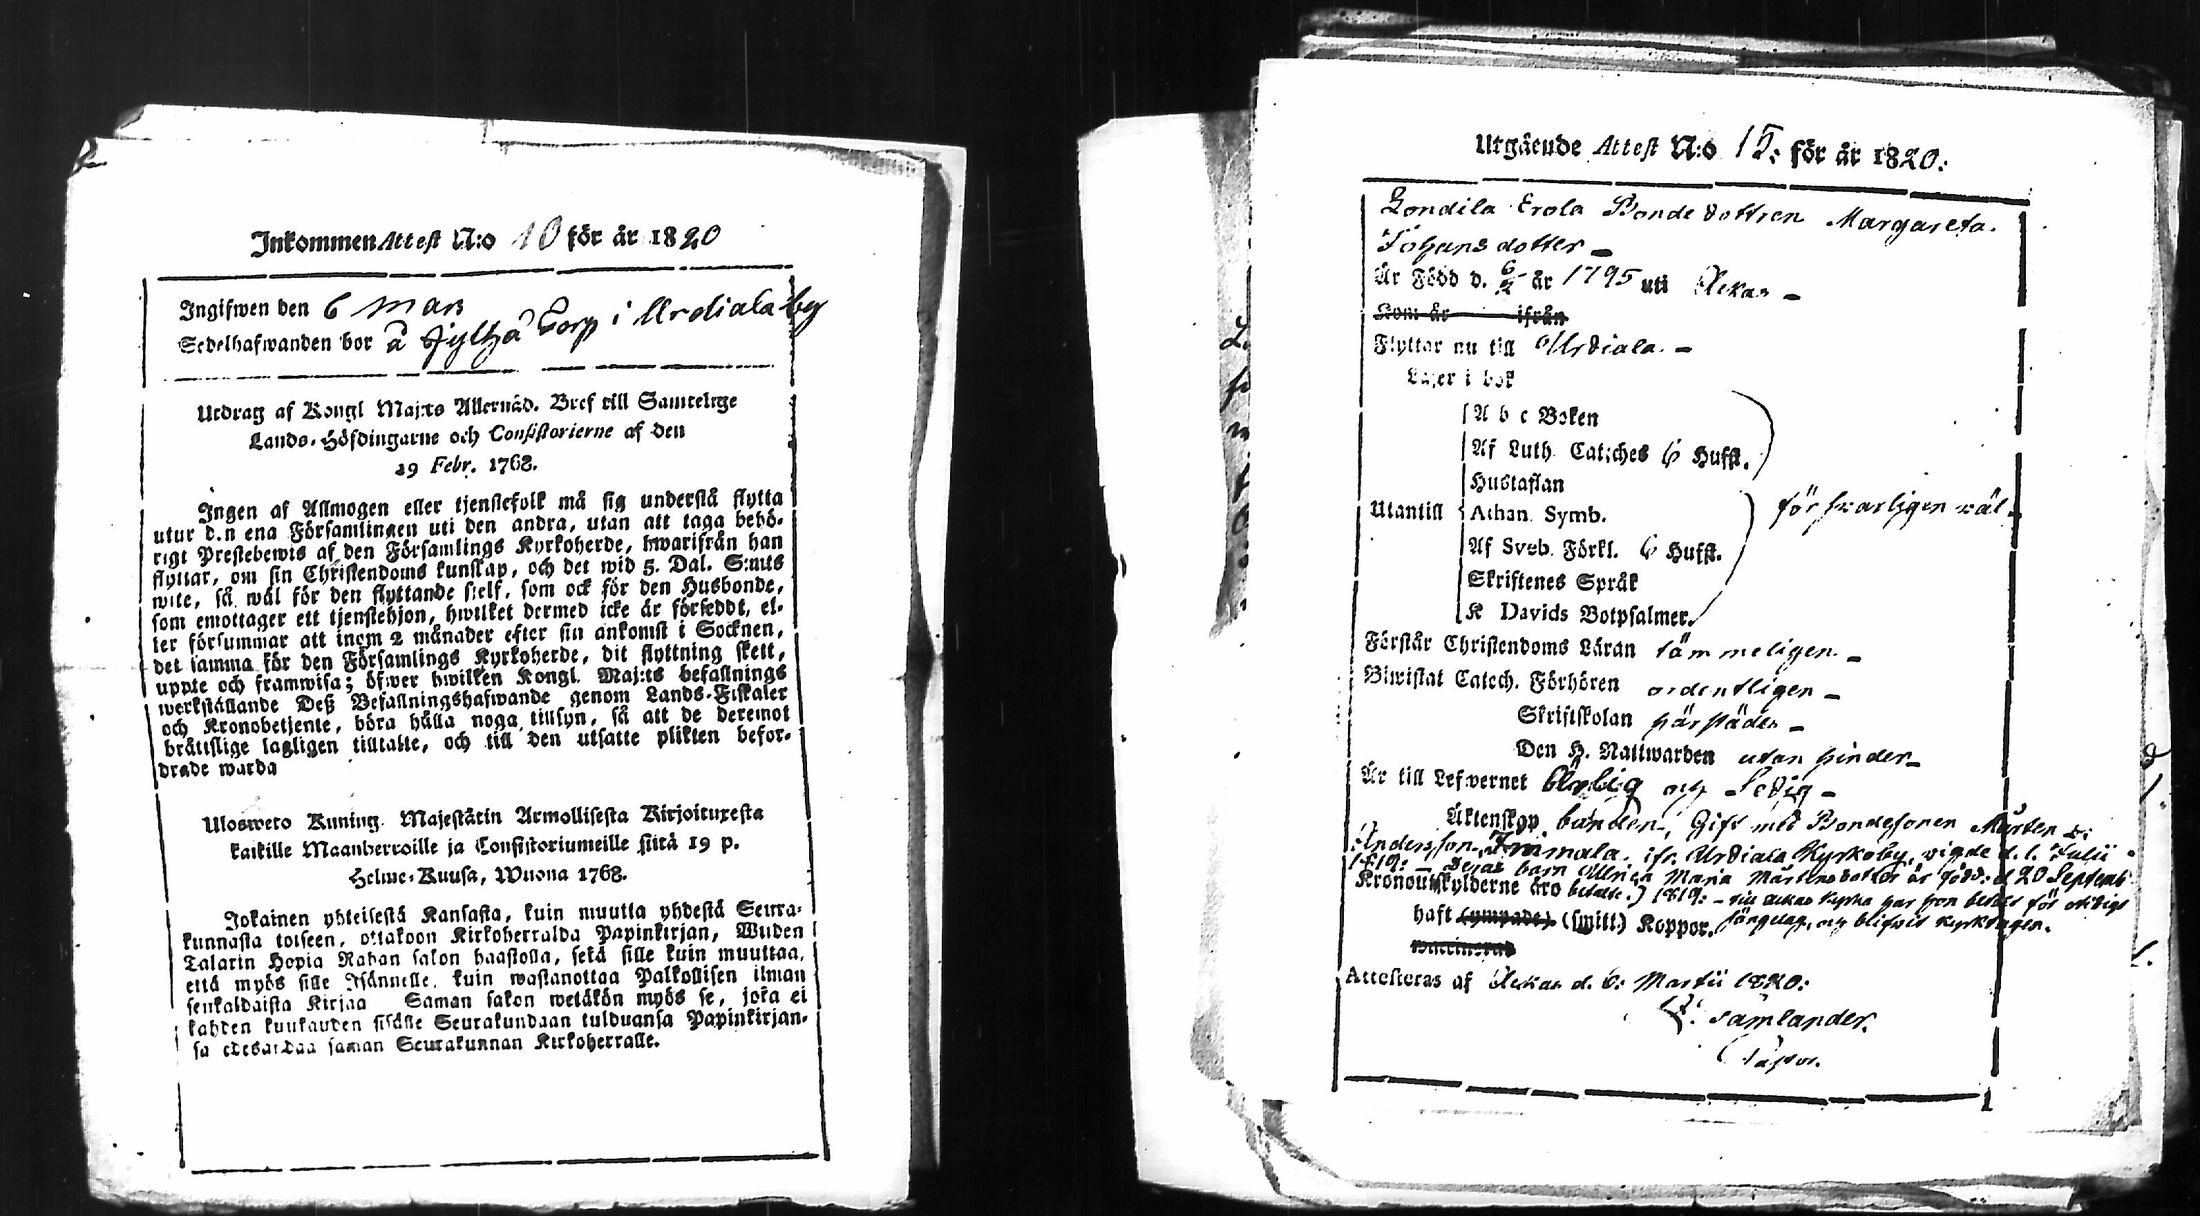 Inkommen Attest N:o 10 för år 1820
Ingifwen den 6 Mars
Sedelhafwanden bor å Jylhå Torp i Urdiala by
Utdrag af Kongl Maj:ts Allernåd. Bref till Samtelige
Lands-Höfdingarne och Consistorierne af den
19 Febr. 1768.
Ingen af Allmogen eller tjenstefolk må sig understå flytta
utur den ena Församlingen uti den andra, utan att taga behö-
rigt Prestebewis af den Församlings Kyrkoherde, hwarifrån han
flyttar, om sin Christendoms kunskap, och det wid 5. Dal. S:mts
wite, så wäl för den flyttande sielf, som ock för den Husbonde,
som emottager ett tjenstehjon, hwilket dermed icke är försedt, el-
ler försummar att inom 2 månader efter sin ankomst i Socknen,
det samma för den Församlings Kyrkoherde, dit flyttning skett,
uppte och framwisa; öfwer hwilken Kongl. Maj:ts befallnings
werkställande Deß Befallningshafwande genom Lands-Fiskaler
och Kronobetjente, böra hålla noga tillsyn, så att de deremot
bråttslige lagligen tilltalte, och till den utsatte plikten befor-
drade warda
Ulosweto Kuning. Majestätin Armollisesta Kirjoituxesta
kaikille Maanherroille ja Consistoriumeille siitä 19 p.
Helme-Kuusa, Wuona 1768.
Jokainen yhteisestä Kansasta, kuin muutta yhdestä Seura-
kunnasta toiseen, ottakoon Kirkoherralda Papinkirjan, Wiiden
Talarin Hopia Rahan sakon haastolla, sekä sille kuin muuttaa,
että myös sille Isännelle, kuin wastanottaa Palkollisen ilman
senkaldaista Kirjaa Saman sakon wetäkön myös se, joka ei
kahden kuukauden sisälle Seurakundaan tulduansa Papinkirjan-
sa edesandaa saman Seurakunnan Kirkoherralle.
Utgående Attest N:o 15. för år 1820:
Londila Erola Bonde dottren Margareta
Johansdotter
Är Född d. 6/2 år 1795 uti Ackas
Kom år ifrån
Flyttar nu till Urdiala.
Läser i bok
Utantill
A b c Boken
Af Luth. Cateches 6 Huffst.
Hustaflan
Athan. Symb.
Af Sveb. Förkl. 6 Huffst.
Skriftenes Språk
K Davids Botpsalmer.
försvarligen väl
Förstår Christendoms Läran tämmeligen
Biwistat Catech. Förhören ordentligen
Skriftskolan härstädes
Den H. Nattwarden utan hinder
Är till Lefwernet Ärlig och Sedig
Äktenskap bunden, Gift med Bondesonen Mårten
Andersson Immala ifr. Urdiala Kyrkoby, vigde d. 1. Julii
1819: deras barn Ulrica Maria Mårtensdotter är född d. 20 Septemb
Kronoutskylderne äro betalte. 1819: till Ackas Kyrka har hon betalt för otidigt
haft (ympade) (smitt.) Koppor. sängelag, och blifvit kyrktagen.
waccinerad
Attesteras af Ackas d. 6: Martii 1820:
Sämlander.
Pastor.